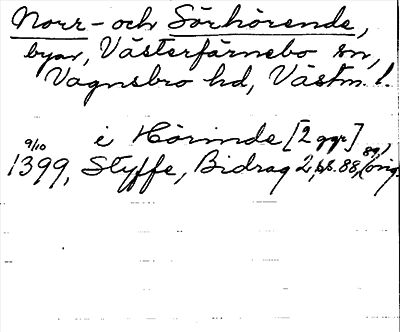 Norr- och Sörhörende,
byar, Västerfärnebo sn,
Vagnsbro hd, Västm. l.
i Hörinde [2 ggr]
9/10 1399, Styffe, Bidrag 2, s. 88, 89, (orig.)